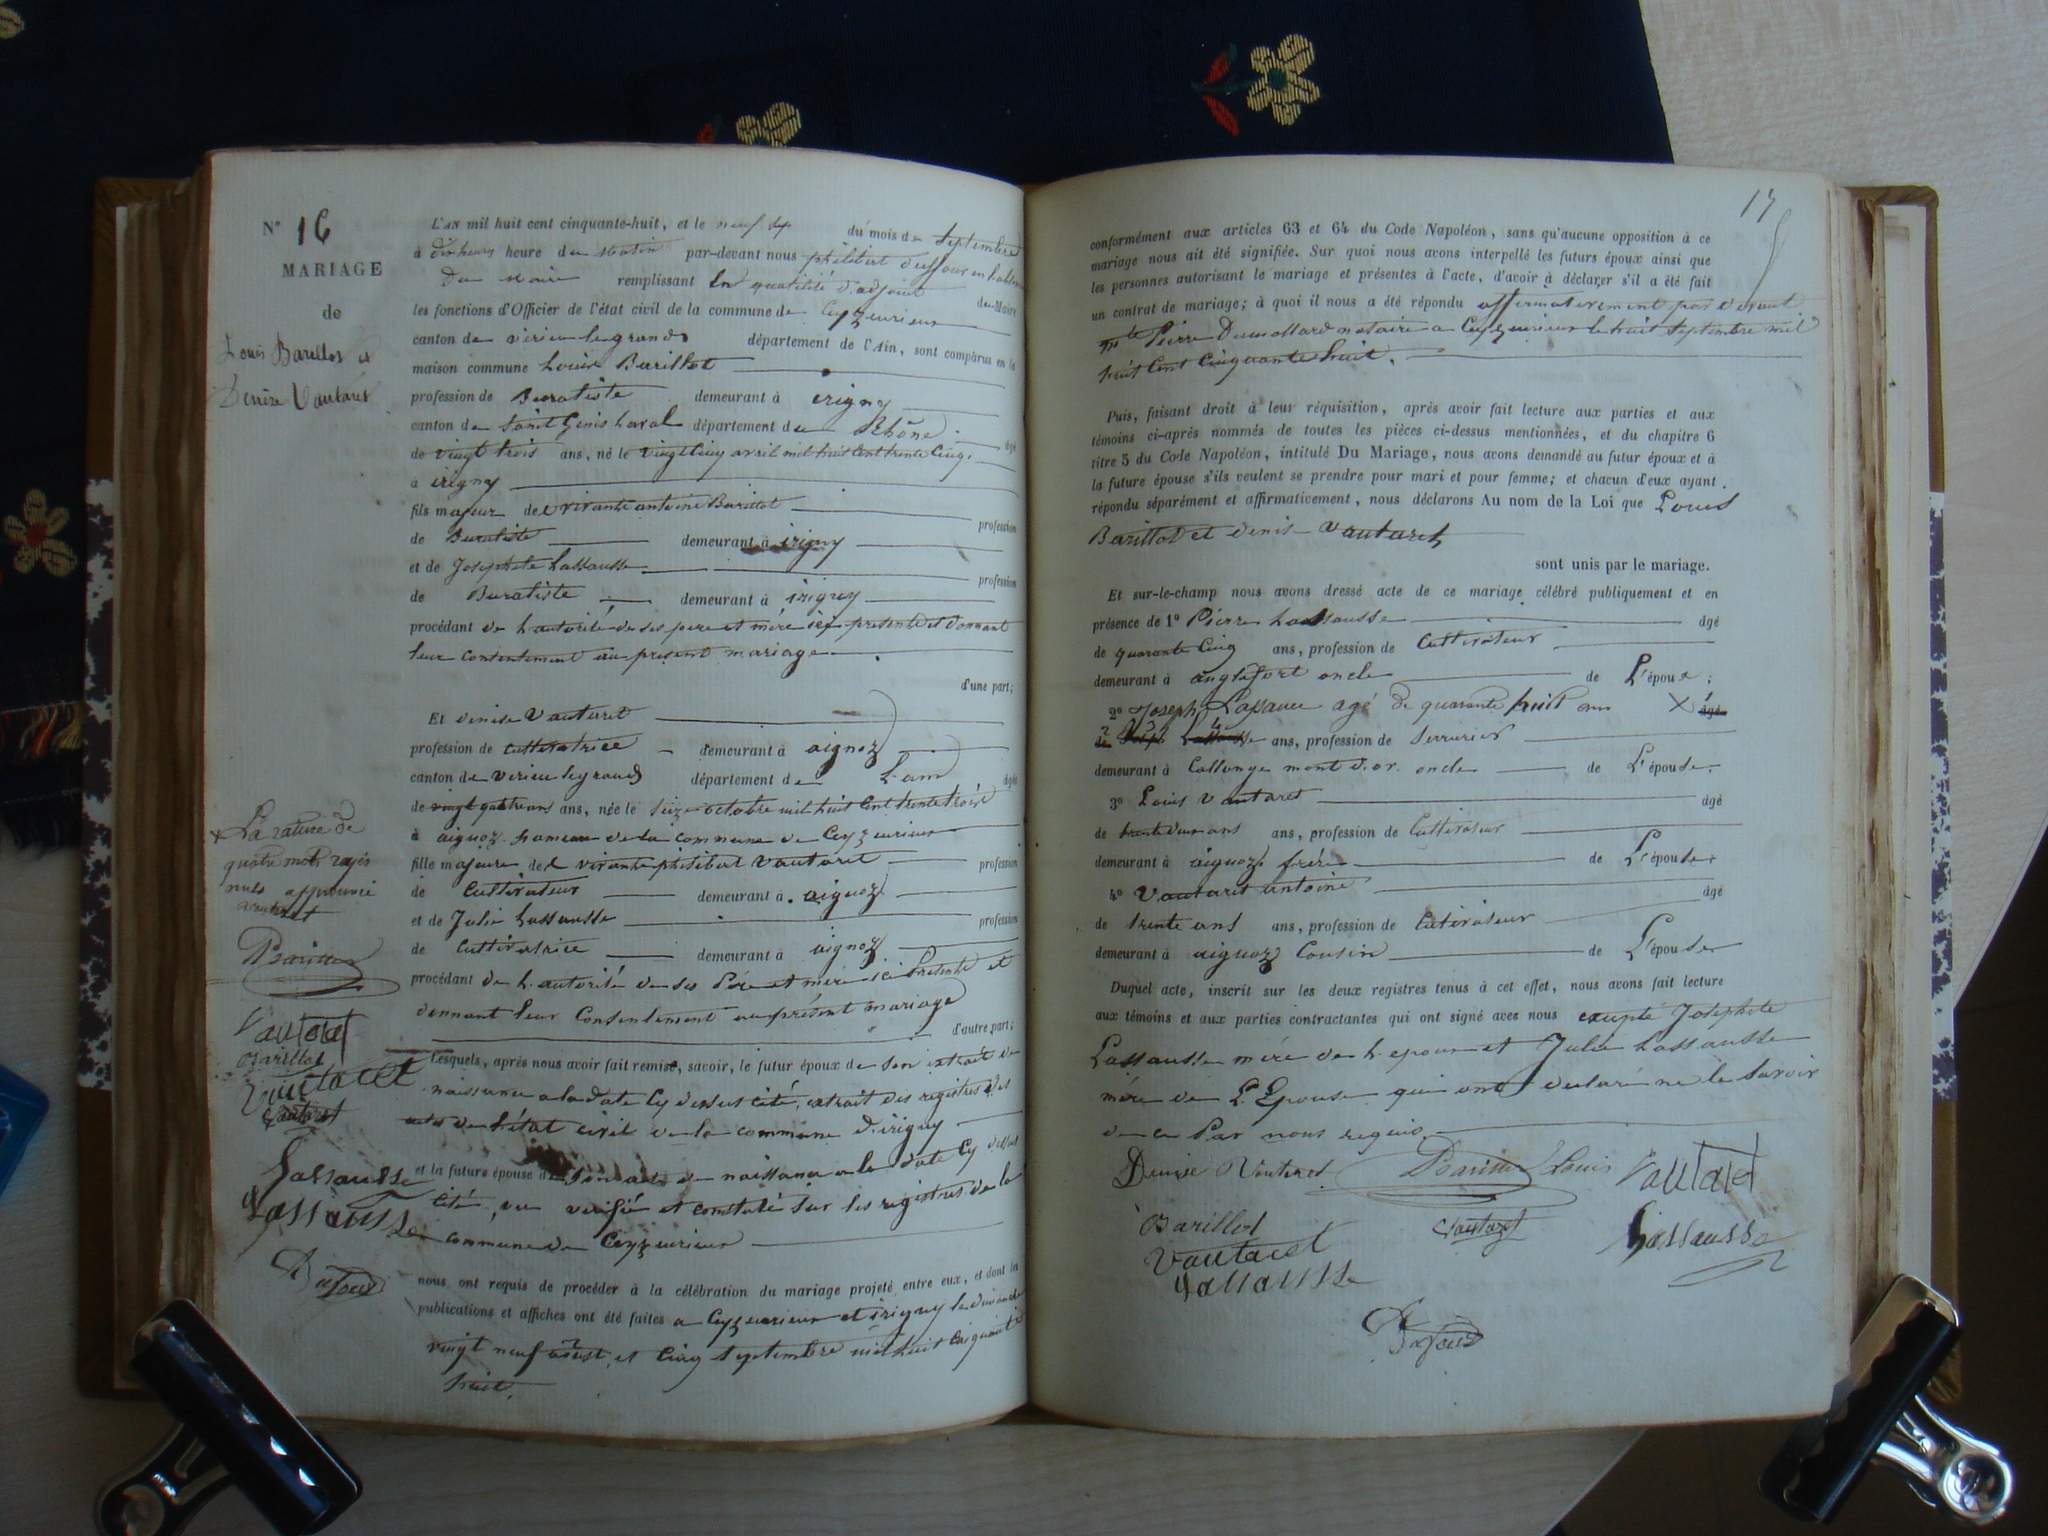 N° 16
MARIAGE
de
Louis Barillot et
Denise Vautaret
L'AN mil huit cent cinquante-huit, et le neuf du mois de Septembre
à dix heure du Matin par-devant nous philibert dufour
du Maire remplissant en qualité d'adjoint du Maire
les fonctions d'Officier de l'état civil de la commune de Ceyzeurieux
canton de virieu le grand département de l'Ain, sont comparus en la
maison commune Louis Barillot
profession de Buratiste demeurant à irigny
canton de Saint Genis Laval département du Rhône âgé
de vingt trois ans, né le vingt Cinq avril mil huit Cent trente Cinq
à irigny
fils majeur de vivante antoine Barillot profession
de Buratiste demeurant à irigny
et de Josephete Lassausse profession
de Buratiste demeurant à irigny
procédant de L'autorité de ses pere et mère ici présente et donnant
leur consentement au présent mariage
d'une part;
Et denise Vautaret
profession de cultivatrice demeurant à aignoz
canton de virieu le grand département de L'ain âgée
de vingt quatre ans ans, née le seize octobre mil huit Cent trente trois
à aignoz hameau de la commune de Ceyzeurieux
fille majeure de vivante philibert Vautaret profession
de Cultivateur demeurant à aignoz
et de Julie Lassausse profession
de Cultivatrice demeurant à aignoz
procédant de L'autorité de ses Père et mère ici Présente et
donnant leur Consentement au présent mariage
d'autre part;
Lesquels, après nous avoir fait remise, savoir, le futur époux de son extrait de
naissance a la date Cy dessus Cité, extrait des registres des
actes de l'état civil de la commune d'irigny
et la future épouse de son acte de naissance a la date Cy dessus
Cité, vu vérifié et constaté sur les registres de la
commune de Ceyzeurieux
nous ont requis de procéder à la célébration du mariage projeté entre eux, et dont les
publications et affiches ont été faites a Ceyzeurieux et irigny le dimanche
vingt neuf août et Cinq septembre mil huit Cinquante
huit.
× La rature de
quatre mots rayés
nuls approuvé
Vautaret
Barillot
Vautaret
Barillot
Vautaret
Vautaret
Lassausse
Lassausse
Dufour
17
conformément aux articles 63 et 64 du Code Napoléon, sans qu'aucune opposition à ce
mariage nous ait été signifiée. Sur quoi nous avons interpellé les futurs époux ainsi que
les personnes autorisant le mariage et présentes à l'acte, d'avoir à déclarer s'il a été fait
un contrat de mariage; à quoi il nous a été répondu affirmativement par devant
Pierre Dumollard notaire a Ceyzeurieux le huit Septembre mil
huit Cent Cinquante huit.
Puis, faisant droit à leur réquisition, après avoir fait lecture aux parties et aux
témoins ci-après nommés de toutes les pièces ci-dessus mentionnées, et du chapitre 6
titre 5 du Code Napoléon, intitulé Du Mariage, nous avons demandé au futur époux et à
la future épouse s'ils veulent se prendre pour mari et pour femme; et chacun d'eux ayant
répondu séparément et affirmativement, nous déclarons Au nom de la Loi que Louis
Barillot et denis Vautaret
sont unis par le mariage.
Et sur-le-champ nous avons dressé acte de ce mariage célébré publiquement et en
présence de 1° Pierre Lassausse âgé
de quarante Cinq ans, profession de Cultivateur
demeurant à anglefort oncle de L'épouse;
2° Joseph Lassausse agé de quarante huit ans × âgé
de ans, profession de Serrurier
demeurant à Collonge mont d'or oncle de L'épouse
3° Louis Vautaret âgé
de trente deux ans ans, profession de Cultivateur
demeurant à aignoz frère de L'épouse
4° Vautaret antoine âgé
de trente ans ans, profession de Cultivateur
demeurant à aignoz Cousin de L'épouse
Duquel acte, inscrit sur les deux registres tenus à cet effet, nous avons fait lecture
aux témoins et aux parties contractantes qui ont signé avec nous excepté Josephete
Lassausse mère de L'epoux et Julie Lassausse
mère de L'Epouse qui ont déclaré ne le Savoir
de ce Par nous requis.
Denise Vautaret Barillot Louis Vautaret
Barillot Vautaret Lassausse
Vautaret
Lassausse
Dufour